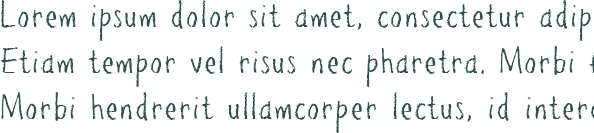 Lorem ipsum dolor sit amet, consectetur adip
Etiam tempor vel risus nec pharetra. Morbi
Morbi hendrerit ullamcorper lectus, id inter